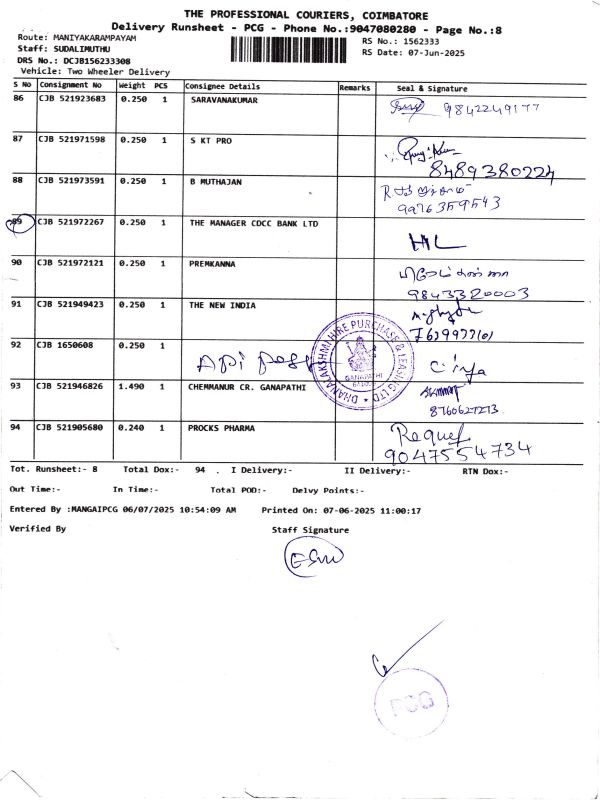 THE PROFESSIONAL COURIERS, COIMBATORE
Delivery Runsheet - PCG - Phone No.:9047080280 - Page No.:8
Route: MANIYAKARAMPAYAM
RS No.: 1562333
Staff: SUDALIMUTHU
RS Date: 07-Jun-2025
DRS No.: DCJB156233308
Vehicle: Two Wheeler Delivery
S No Consignment No Weight PCS Consignee Details Remarks Seal & Signature
86 CJB 521923683 0.250 1 SARAVANAKUMAR 9842249177
87 CJB 521971598 0.250 1 S KT PRO
8489380224
88 CJB 521973591 0.250 1 B MUTHAJAN
9976359543
89 CJB 521972267 0.250 1 THE MANAGER CDCC BANK LTD
90 CJB 521972121 0.250 1 PREMKANNA
9843320003
91 CJB 521949423 0.250 1 THE NEW INDIA
92 CJB 1650608 0.250 1
DHANALAKSHMI HIRE PURCHASE & LEASING LTD
GANAPATHI
93 CJB 521946826 1.490 1 CHEMMANUR CR. GANAPATHI
8760627273
94 CJB 521905680 0.240 1 PROCKS PHARMA
9047554734
Tot. Runsheet:- 8 Total Dox:- 94 . I Delivery:- II Delivery:- RTN Dox:-
Out Time:- In Time:- Total POD:- Delvy Points:-
Entered By :MANGAIPCG 06/07/2025 10:54:09 AM Printed On: 07-06-2025 11:00:17
Verified By Staff Signature
PCG